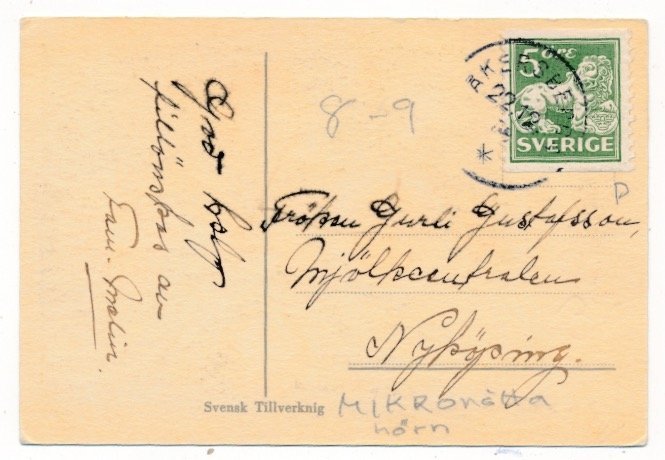 God Jul
tillönskas av
Fam. Malin.
8-9
5 ÖRE
SVERIGE
22.12
D
Fröken Gurli Gustafsson,
Mjölkcentralen
Nyköping.
Svensk Tillverknig
MIKRONötta
hörn